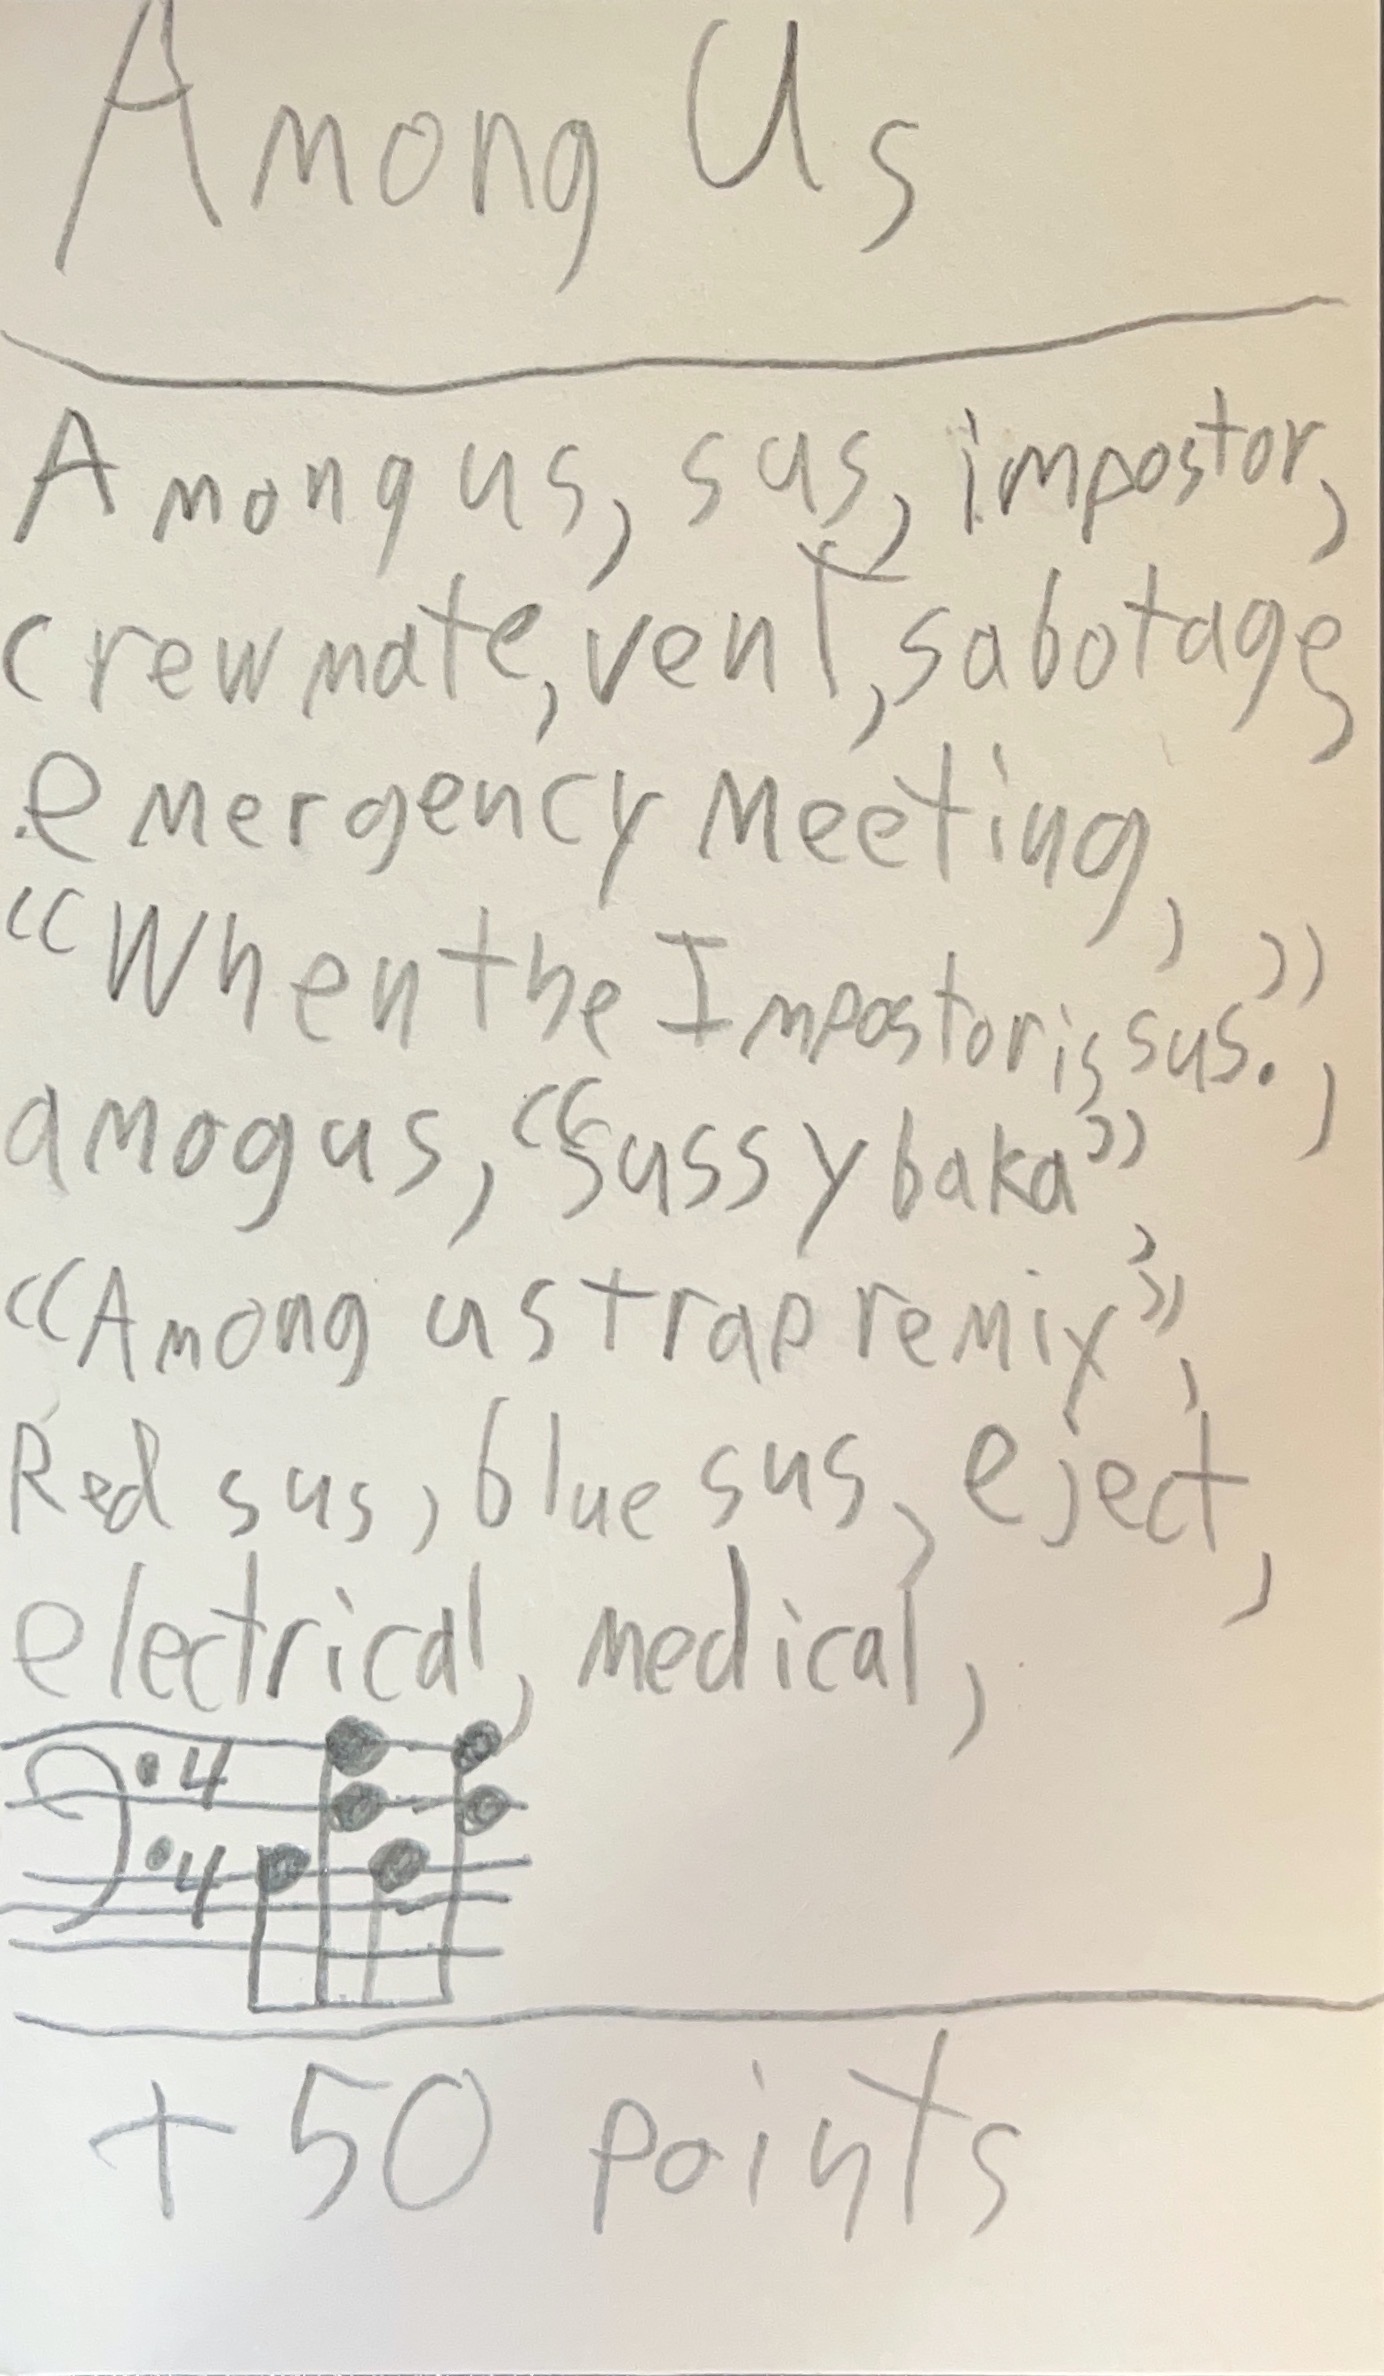 Among Us
Among us, sus, impostor,
crewmate, vent, sabotage,
emergency meeting,
“When the Impostor is sus.”,
amogus, “Sussy baka”,
“Among us trap remix”,
Red sus, blue sus, eject,
electrical, medical,
4
4
+50 points